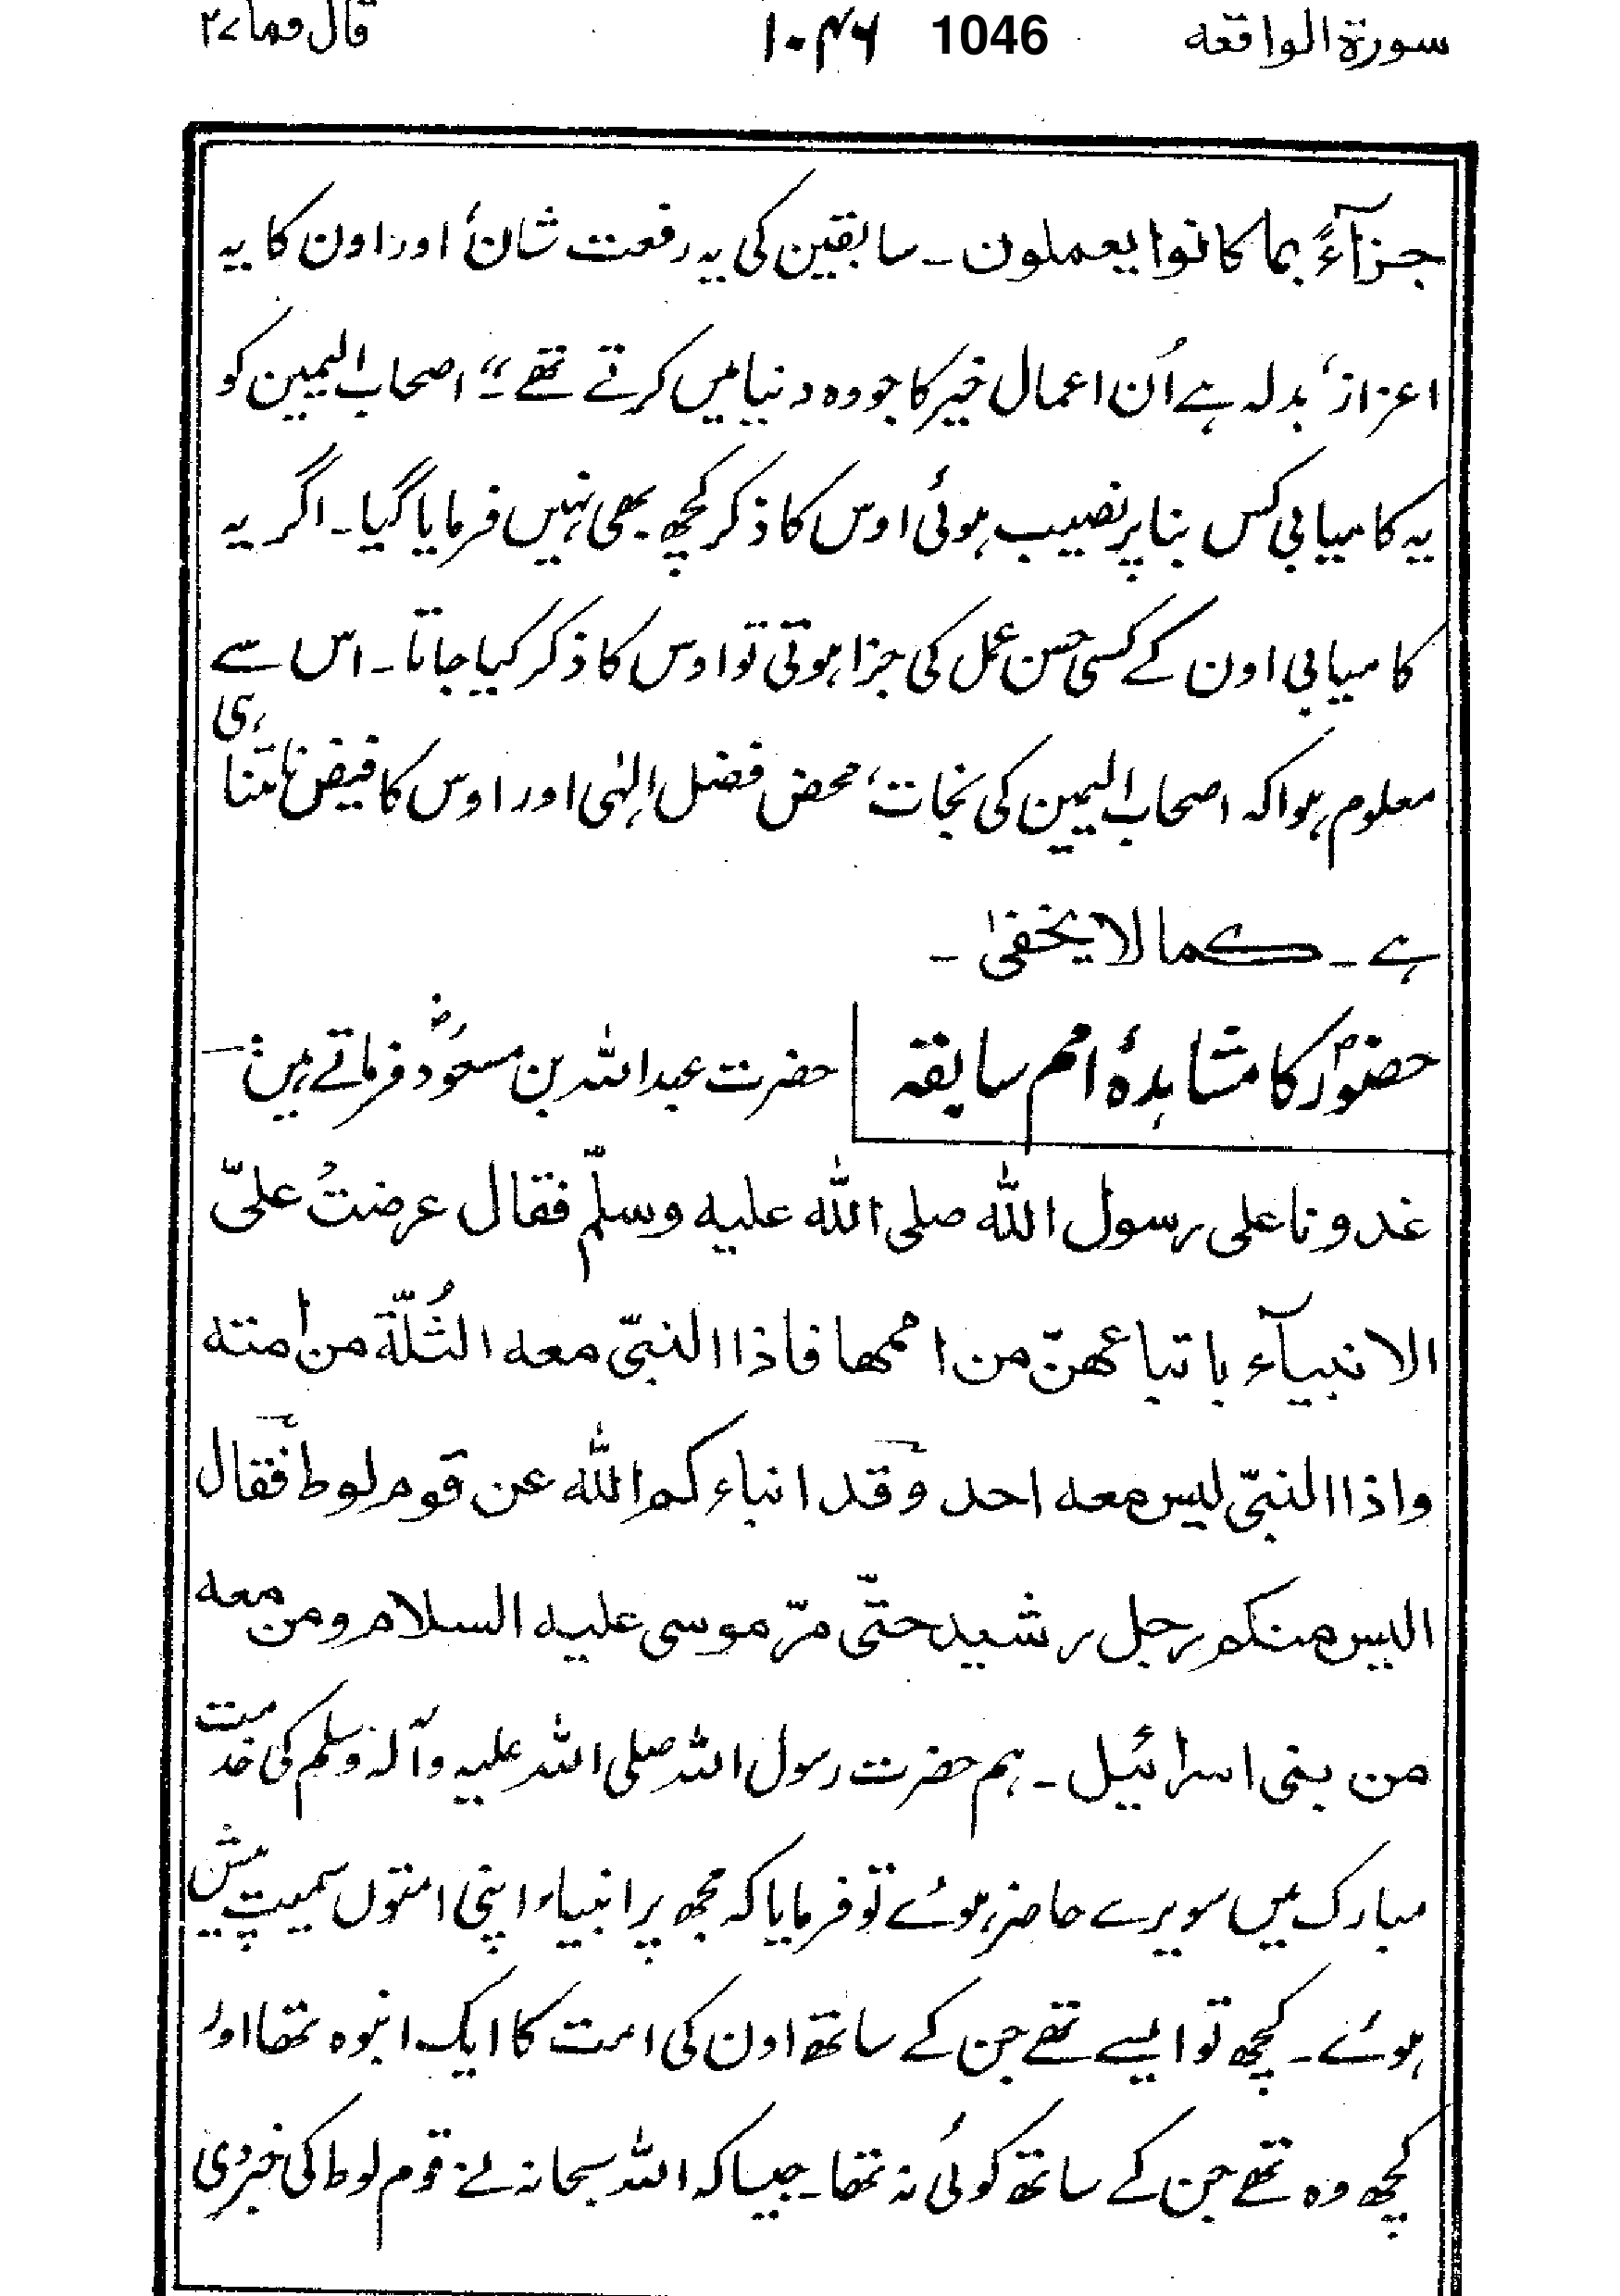 سورۃ الواقعہ 1046 ۱۰۴۶ قال فما ۲۷
جزآءً بما کانوا یعملون ۔ سابقین کی یہ رفعت شان‘ اور اون کا یہ
اعزاز‘ بدلہ ہے اُن اعمال خیر کا جو وہ دنیا میں کرتے تھے“۔ اصحاب الیمین کو
یہ کامیابی کس بنا پر نصیب ہوئی اوس کا ذکر کچھ بھی نہیں فرمایا گیا ۔ اگر یہ
کامیابی اون کے کسی حسن عمل کی جزا ہوتی تو اوس کا ذکر کیا جاتا ۔ اس سے
معلوم ہوا کہ اصحاب الیمین کی نجات‘ محض فضل الٰہی اور اوس کا فیض نامتناہی
ہے ۔ کما لا یخفیٰ ۔
حضورؐ کا مشاہدۂ امم سابقہ حضرت عبداللہ بن مسعودؓ فرماتے ہیں:
غدونا علی رسول اللہ صلی اللہ علیہ وسلّم فقال عرضتُ علیّ
الانبیآء باتباعھنّ من اممھا فاذا النبیّ معہ الثُلّۃ من امتہ
واذا النبیّ لیس معہ احد وقد انباءکم اللہ عن قوم لوط فقال
الیس منکم رجل رشید حتّی مرّ موسی علیہ السلام ومن معہ
من بنی اسرائیل ۔ ہم حضرت رسول اللہ صلی اللہ علیہ وآلہ وسلم کی خدمت
مبارک میں سویرے حاضر ہوئے تو فرمایا کہ مجھ پر انبیاء اپنی امتوں سمیت پیش
ہوئے ۔ کچھ تو ایسے تھے جن کے ساتھ اون کی امت کا ایک انبوہ تھا اور
کچھ وہ تھے جن کے ساتھ کوئی نہ تھا ۔ جیسا کہ اللہ سبحانہ نے قوم لوط کی خبر دی